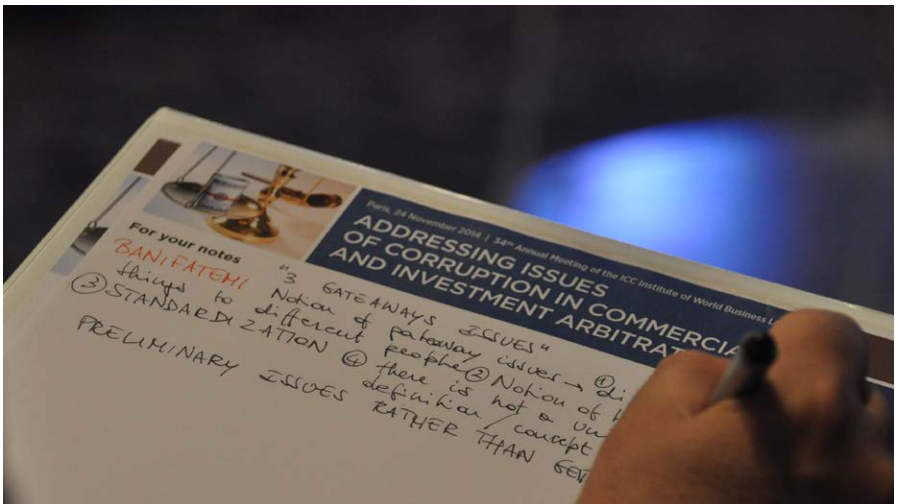 Paris, 24 November 2014 | 34th Annual Meeting of the ICC Institute of World Business
ADDRESSING ISSUES
OF CORRUPTION IN COMMERCIA
AND INVESTMENT ARBITRAT
For your notes
BANIFATEMI "3 GATEAWAYS ISSUES"
Notion of gateway issues → ① di
things to different people ② Notion of
③ STANDARDIZATION ④ there is not a un
definition / concept
PRELIMINARY ISSUES RATHER THAN